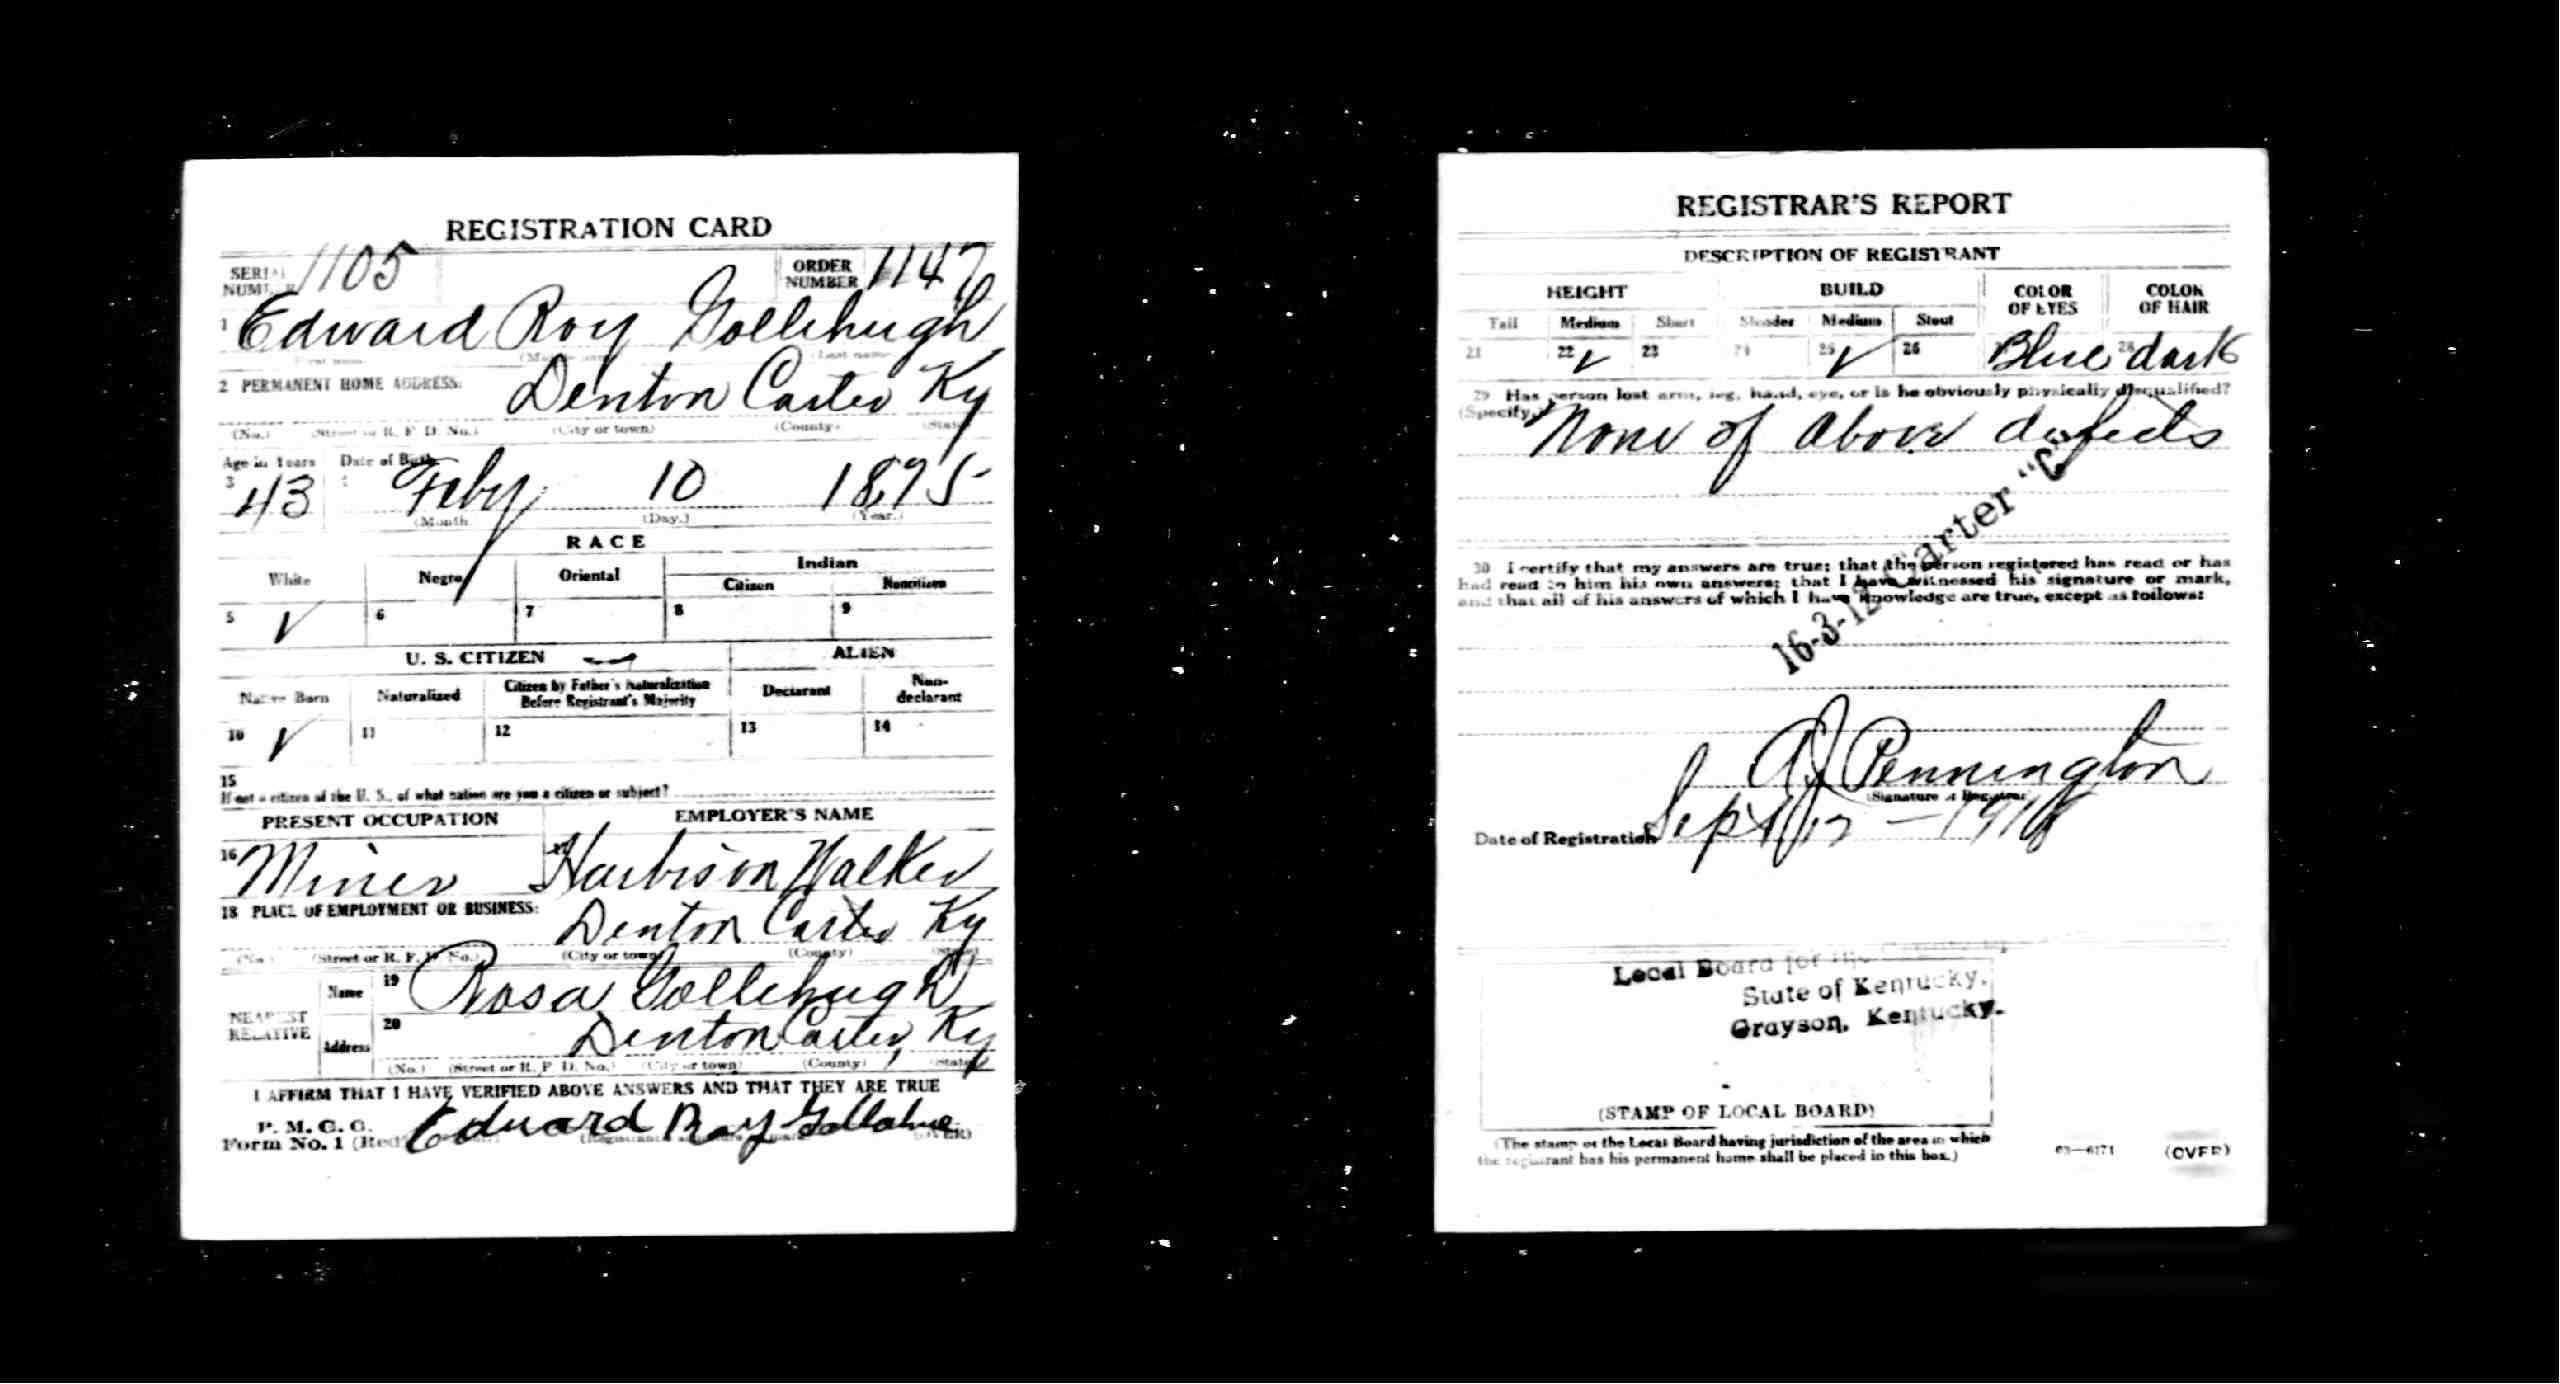 REGISTRATION CARD
SERIAL NUMBER 1105 ORDER NUMBER 1147
1 Edward Roy Gollihugh
(First name) (Middle name) (Last name)
2 PERMANENT HOME ADDRESS:
Denton Carter Ky
(No.) (Street or R. F. D. No.) (City or town) (County) (State)
Age in Years Date of Birth
3 43 4 Feby 10 1875
(Month (Day.) (Year.)
RACE
White Negro Oriental Indian
Citizen Noncitizen
5 ✓ 6 7 8 9
U. S. CITIZEN ALIEN
Native Born Naturalized Citizen by Father's Naturalization Before Registrant's Majority Declarant Non-declarant
10 ✓ 11 12 13 14
15
If not a citizen of the U. S., of what nation are you a citizen or subject?
PRESENT OCCUPATION EMPLOYER'S NAME
16 Miner 17 Harbison Walker
18 PLACE OF EMPLOYMENT OR BUSINESS:
Denton Carter Ky
(No.) (Street or R. F. D. No.) (City or town) (County) (State)
NEAREST RELATIVE
Name 19 Rosa Gollihugh
Address 20 Denton Carter, Ky
(No.) (Street or R. F. D. No.) (City or town) (County) (State)
I AFFIRM THAT I HAVE VERIFIED ABOVE ANSWERS AND THAT THEY ARE TRUE
P. M. G. O.
Form No. 1 (Red) Edward Ray Gollahue (OVER)
REGISTRAR'S REPORT
DESCRIPTION OF REGISTRANT
HEIGHT BUILD COLOR OF EYES COLOR OF HAIR
Tall Medium Short Slender Medium Stout
21 22 ✓ 23 24 25 ✓ 26 Blue 28 dark
29 Has person lost arm, leg, hand, eye, or is he obviously physically disqualified?
(Specify.) None of above defects
16-3-12 Carter "C"
30 I certify that my answers are true; that the person registered has read or has
had read to him his own answers; that I have witnessed his signature or mark,
and that all of his answers of which I have knowledge are true, except as follows:
A J Pennington
(Signature of Registrar)
Date of Registration Sept 12 - 1918
Local Board for the County of
State of Kentucky,
Grayson, Kentucky.
(STAMP OF LOCAL BOARD)
(The stamp of the Local Board having jurisdiction of the area in which
the registrant has his permanent home shall be placed in this box.)
03—6171 (OVER)